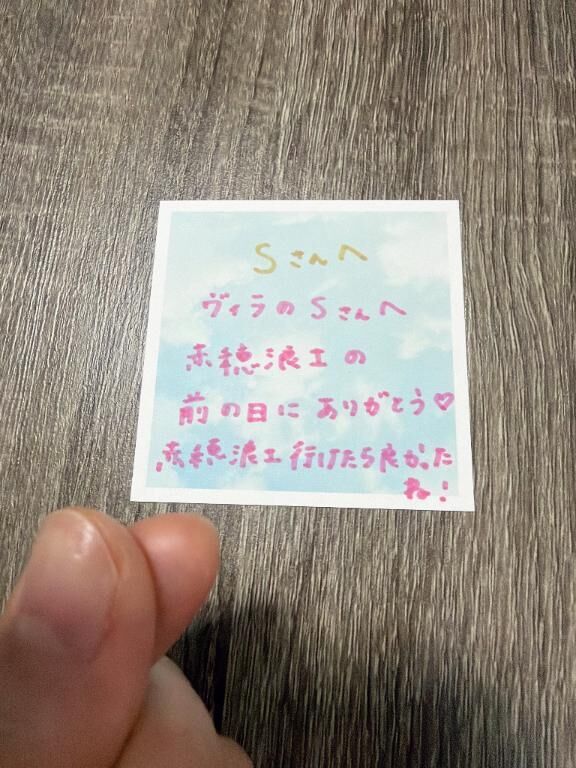 Sさんへ
ヴィラのSさんへ
赤穂浪士の
前の日に ありがとう♡
赤穂浪士行けたら良かった
ね!